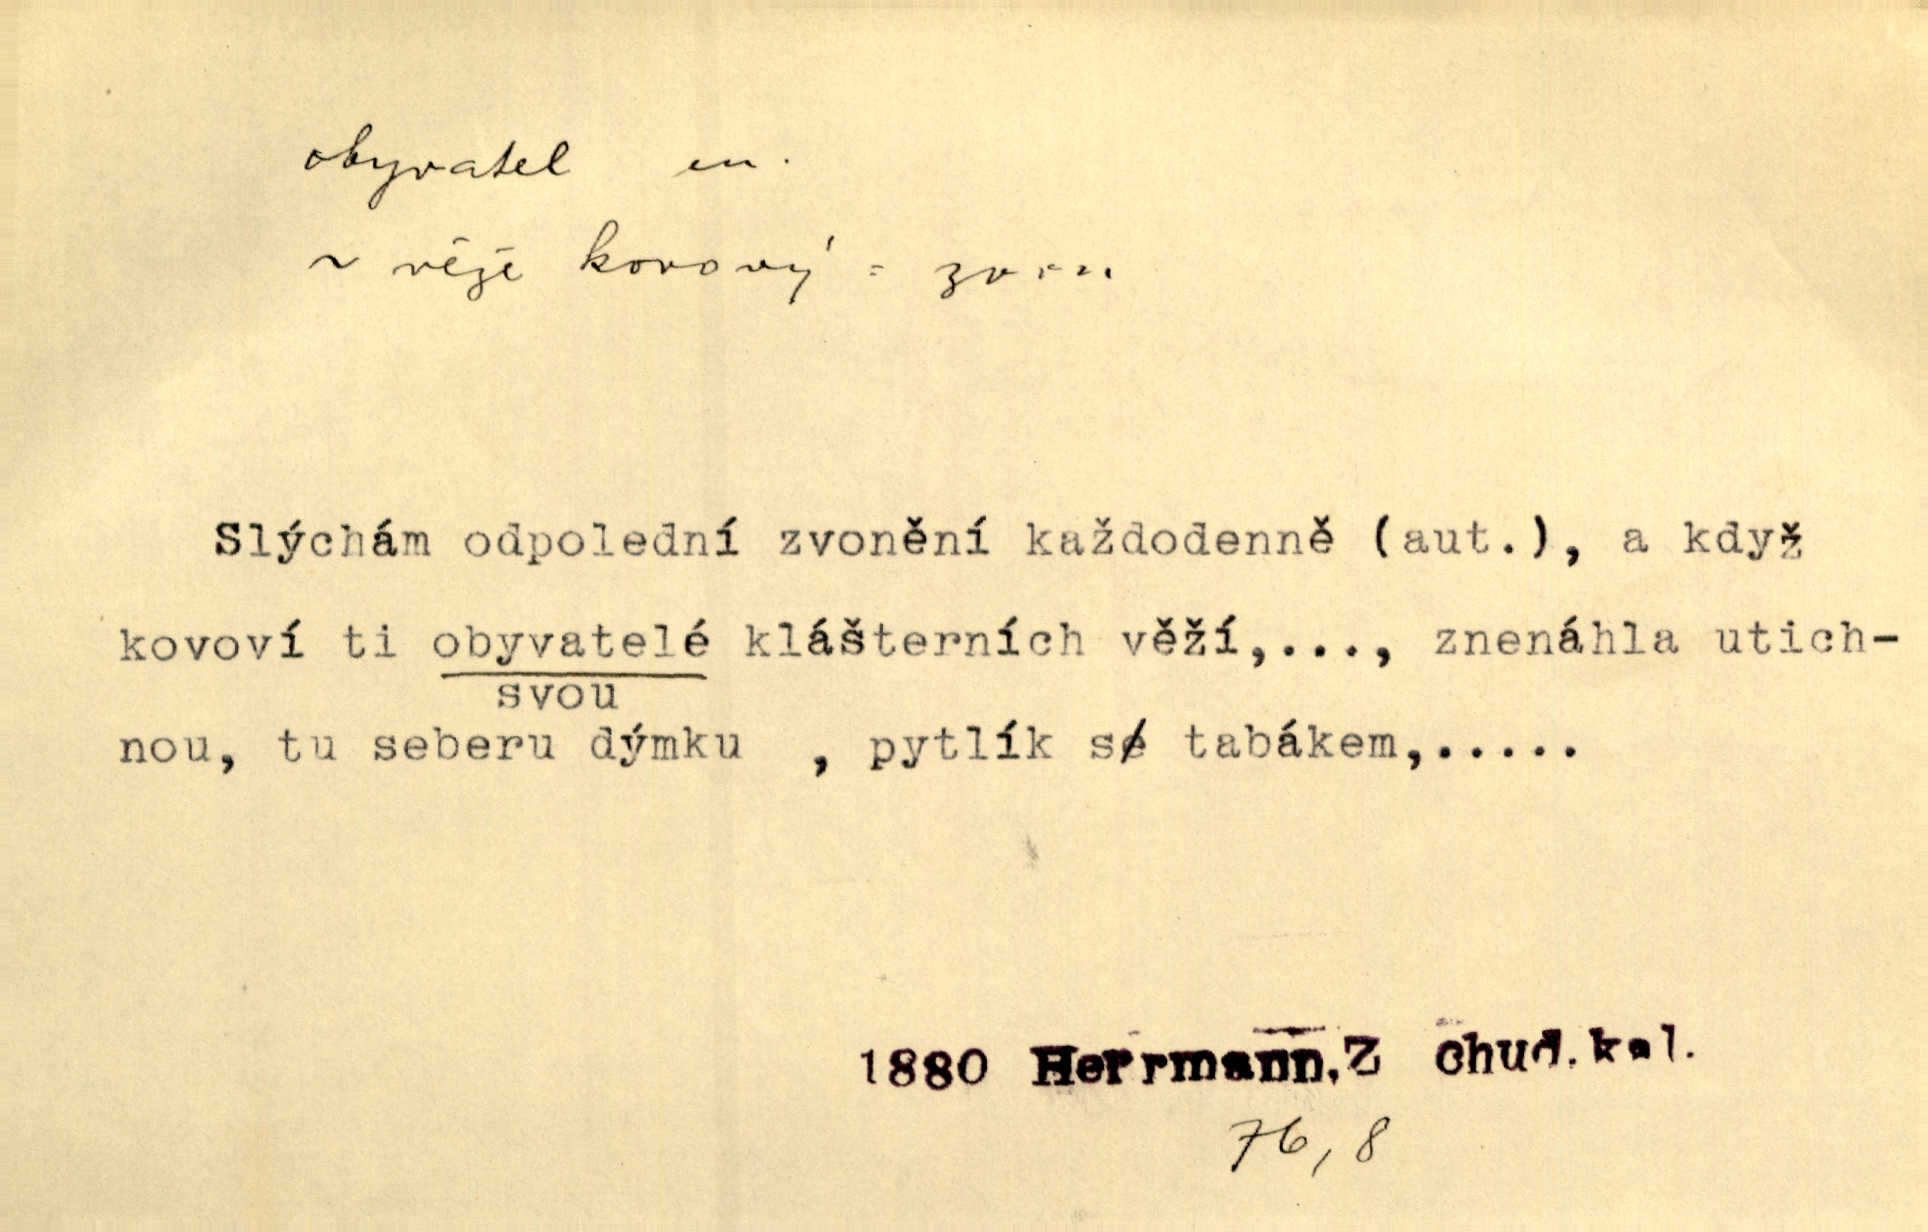 obyvatel m.
~ věže kovový = zvon
Slýchám odpolední zvonění každodenně (aut.), a když
kovoví ti obyvatelé klášterních věží,..., znenáhla utich-
svou
nou, tu seberu dýmku , pytlík s tabákem,.....
1880 Herrmann,Z chud.kal.
76,8